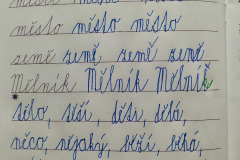 město město město
země země, země země,
Mělník Mělník Mělník
tělo, těší, děti, dělá,
něco, nějaký, běží, běhá,